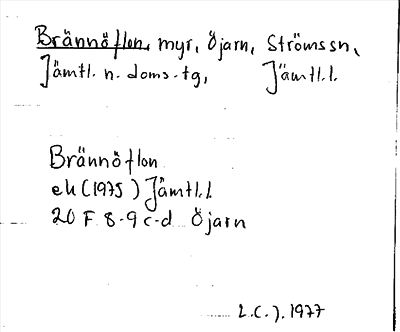 Brännöflon, myr, Öjarn, Strömssn,
Jämtl. n. doms.tg, Jämtl.l.
Brännöflon
ek (1975) Jämtl.l
20 F 8-9 c-d Öjarn
L.C.J. 1977